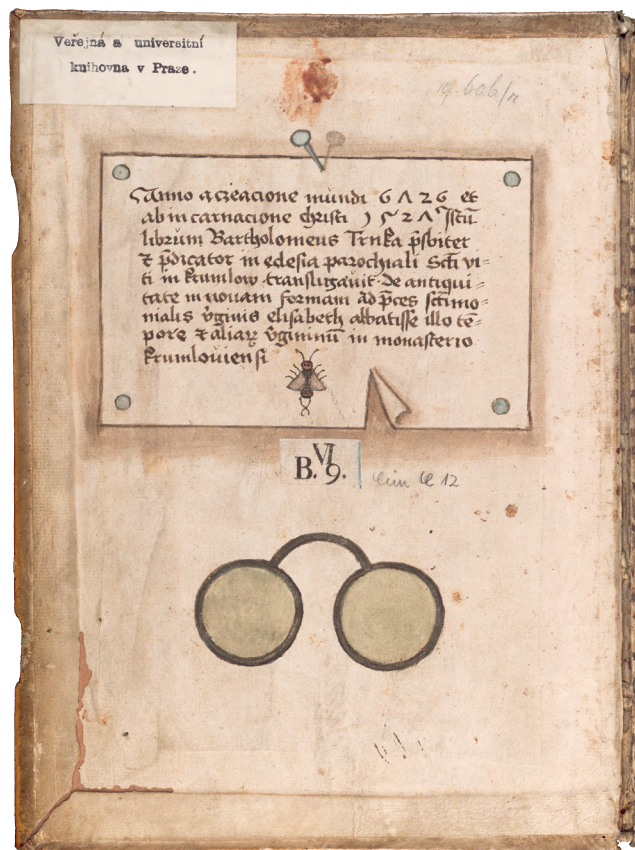 Veřejná a universitní
knihovna v Praze.
19 b06/n
Anno a creacione mundi 6726 et
ab incarnacione christi 1527 Istū
librum Bartholomeus Trnka p̄sbiter
et p̄dicator in eclesia parochiali Scti vi-
ti in krumlow transligavit de antiqui-
tate in novam formam ad p̄ces sctimo-
nialis v̄ginis elisabeth abbatisse illo tē-
pore et aliarꝝ v̄gininū in monasterio
krumloviensi
VI
B. 9.
12